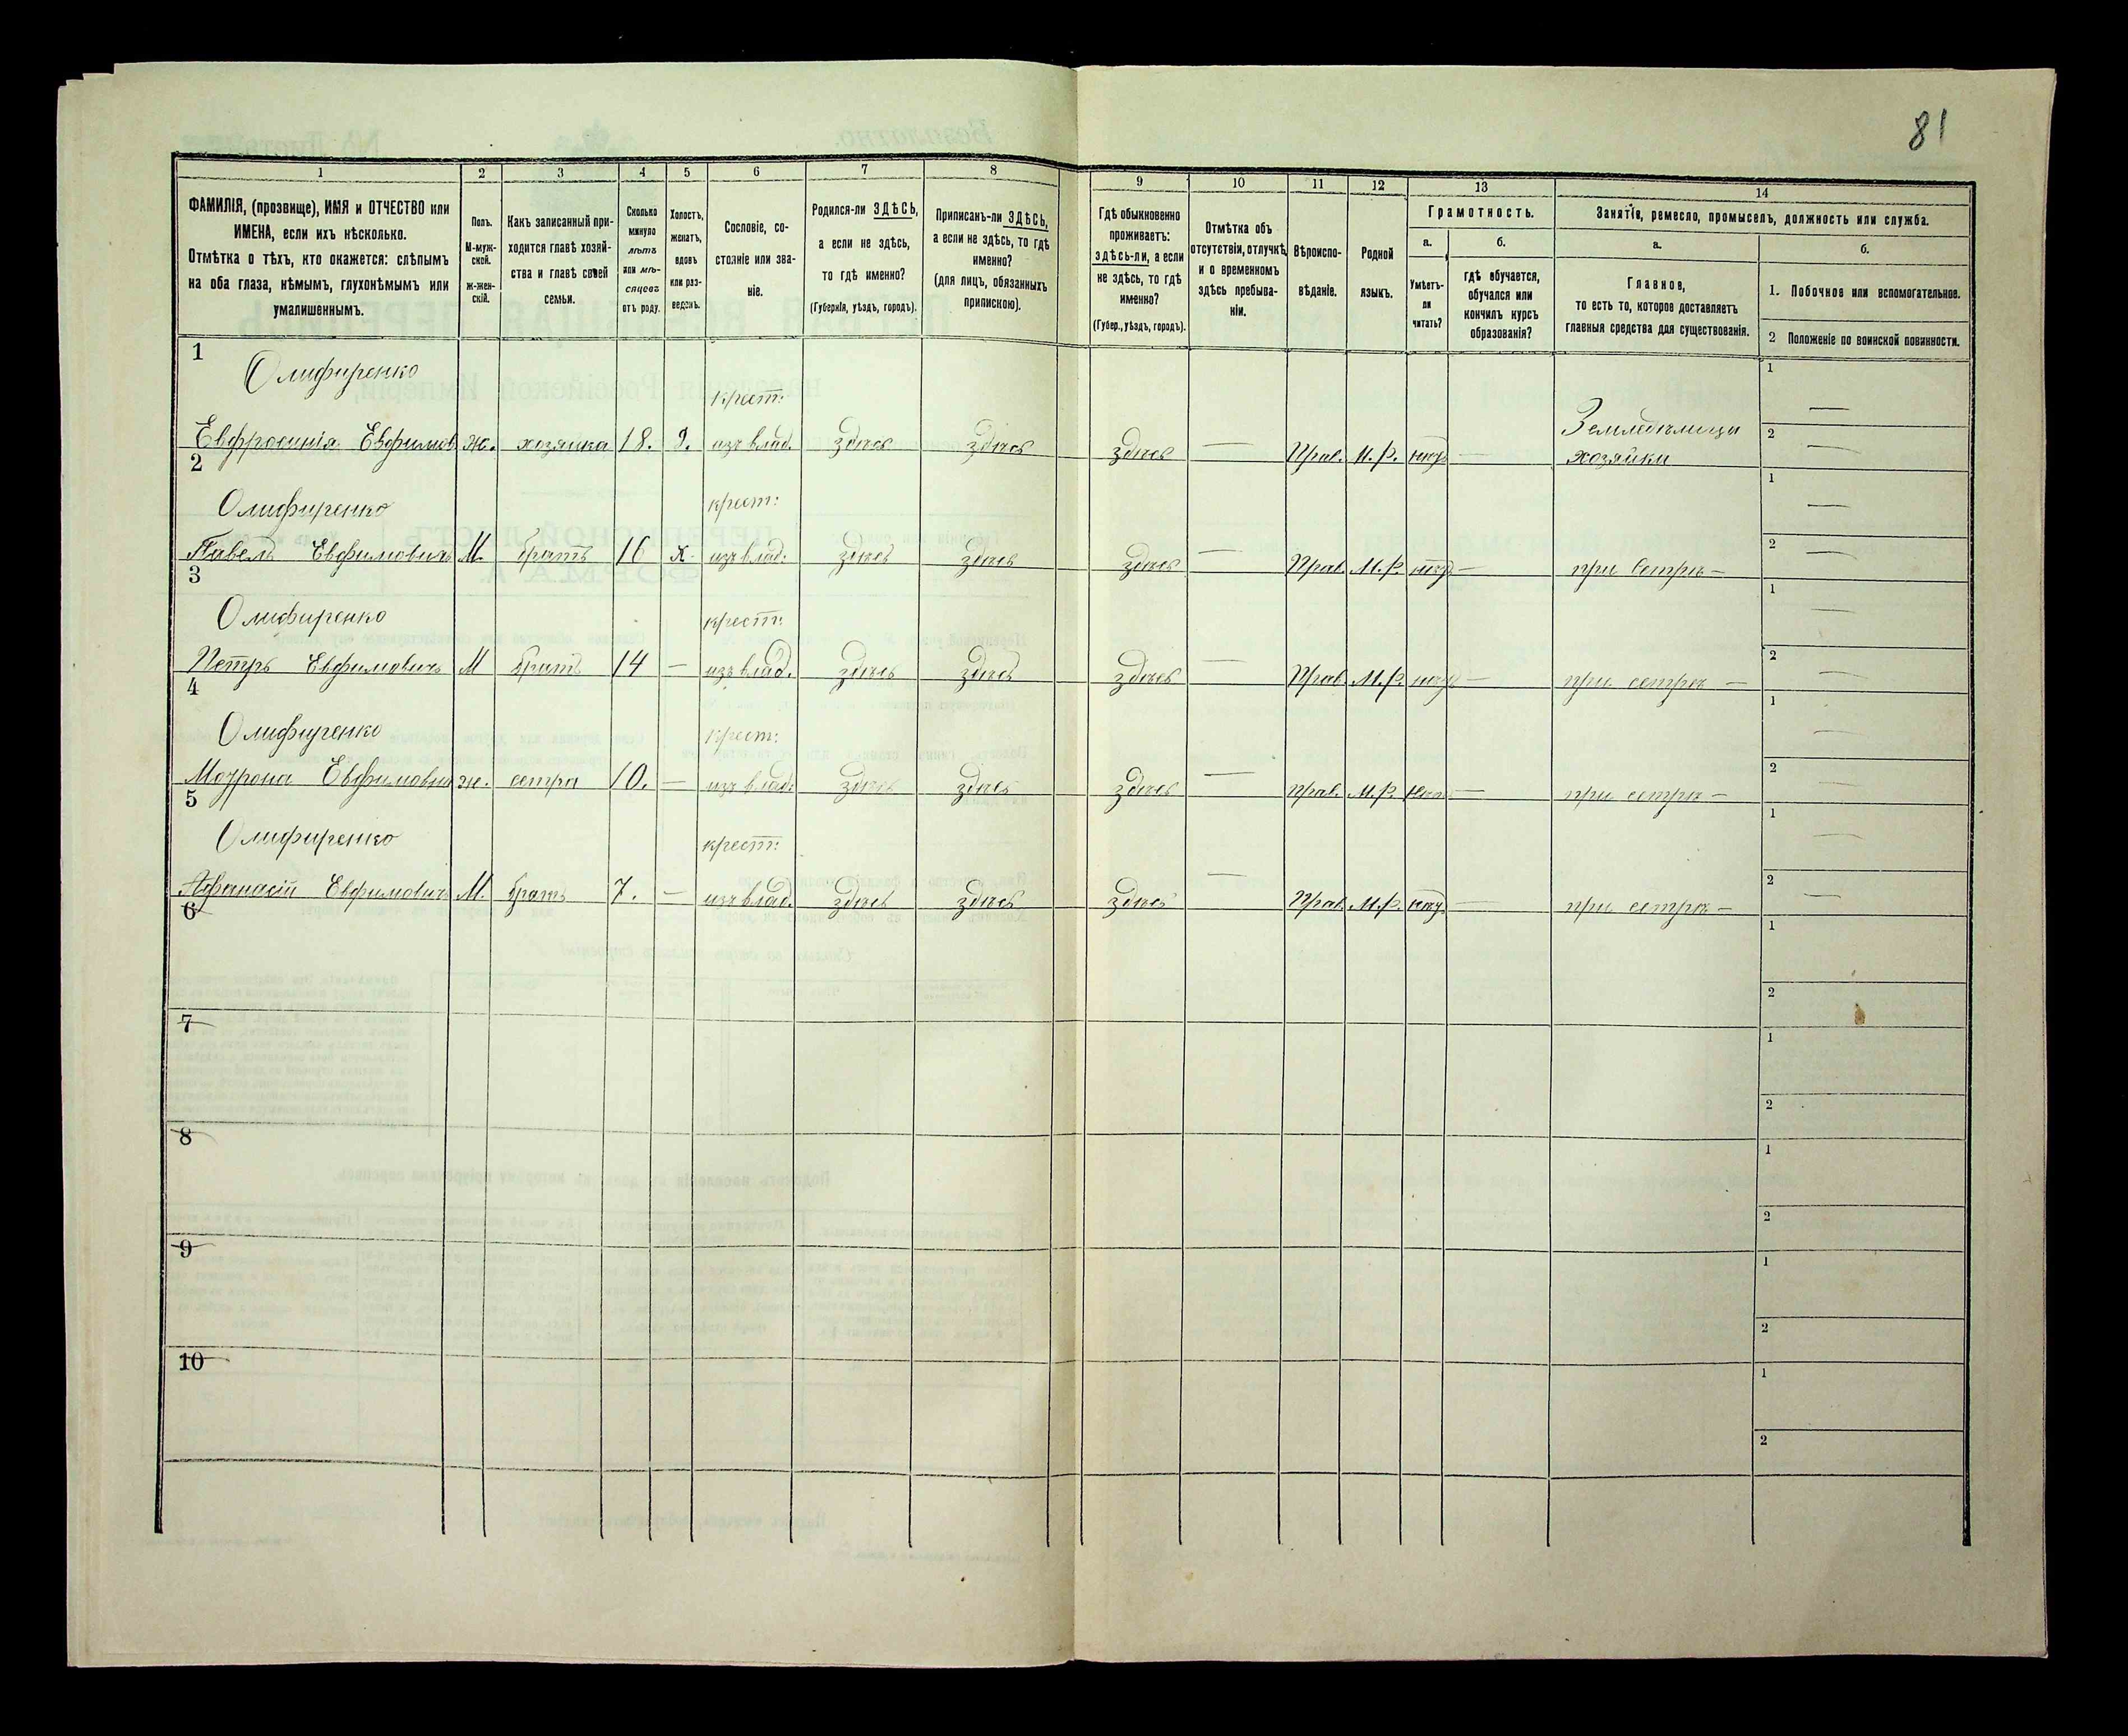 81
1 2 3 4 5 6 7 8 9 10 11 12 13 14
ФАМИЛІЯ, (прозвище), ИМЯ и ОТЧЕСТВО или
ИМЕНА, если ихъ нѣсколько.
Отмѣтка о тѣхъ, кто окажется: слѣпымъ
на оба глаза, нѣмымъ, глухонѣмымъ или
умалишеннымъ.
Полъ.
М-муж-
ской.
Ж-жен-
скій.
Какъ записанный при-
ходится главѣ хозяй-
ства и главѣ своей
семьи.
Сколько
минуло
лѣтъ
или мѣ-
сяцевъ
отъ роду.
Холостъ,
женатъ,
вдовъ
или раз-
веденъ.
Сословіе, со-
стояніе или зва-
ніе.
Родился-ли ЗДѢСЬ,
а если не здѣсь,
то гдѣ именно?
(Губернія, уѣздъ, городъ).
Приписанъ-ли ЗДѢСЬ,
а если не здѣсь, то гдѣ
именно?
(для лицъ, обязанныхъ
припискою).
Гдѣ обыкновенно
проживаетъ:
здѣсь-ли, а если
не здѣсь, то гдѣ
именно?
(Губер., уѣздъ, городъ).
Отмѣтка объ
отсутствіи, отлучкѣ
и о временномъ
здѣсь пребыва-
ніи.
Вѣроиспо-
вѣданіе.
Родной
языкъ.
Грамотность.
а.
Умѣетъ-
ли
читать?
б.
гдѣ обучается,
обучался или
кончилъ курсъ
образованія?
Занятіе, ремесло, промыселъ, должность или служба.
а.
Главное,
то есть то, которое доставляетъ
главныя средства для существованія.
б.
1. Побочное или вспомогательное.
2 Положеніе по воинской повинности.
1
Олифиренко крест: 1 —
Евфросинія Евфимов ж. хозяйка 18. Д. изъ влад. здѣсь здѣсь здѣсь — Прав. М.Р. нѣтъ — Земледѣлицы хозяйки 2 —
2
Олифиренко крест: 1 —
Павелъ Евфимовичъ М. братъ 16 х. изъ влад. здѣсь здѣсь здѣсь — Прав. М.Р. нѣтъ — при сестрѣ — 2 —
3
Олифиренко крест: 1 —
Петръ Евфимовичъ М братъ 14 — изъ влад. здѣсь здѣсь здѣсь — Прав. М.Р. нѣтъ — при сестрѣ — 2 —
4
Олифиренко крест: 1 —
Мотрона Евфимовна ж. сестра 10. — изъ влад. здѣсь здѣсь здѣсь — Прав. М.Р. нѣтъ — при сестрѣ — 2 —
5
Олифиренко крест: 1 —
Афанасій Евфимовичъ М. братъ 7. — изъ влад. здѣсь здѣсь здѣсь — Прав. М.Р. нѣтъ — при сестрѣ — 2 —
6 1
2
7 1
2
8 1
2
9 1
2
10 1
2